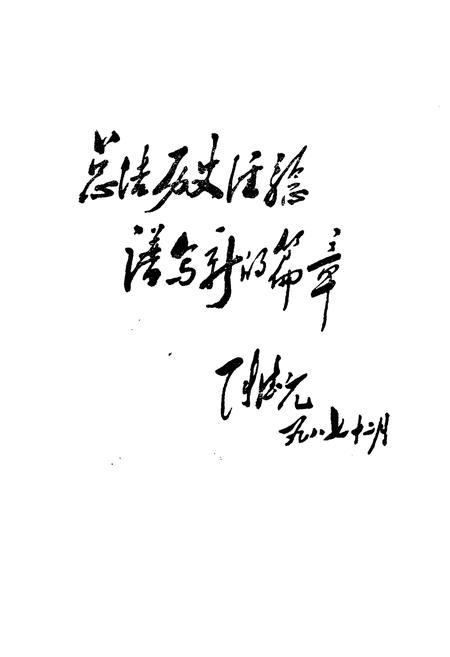 总结历史经验
谱写新的篇章
陈德元
一九八七十二月